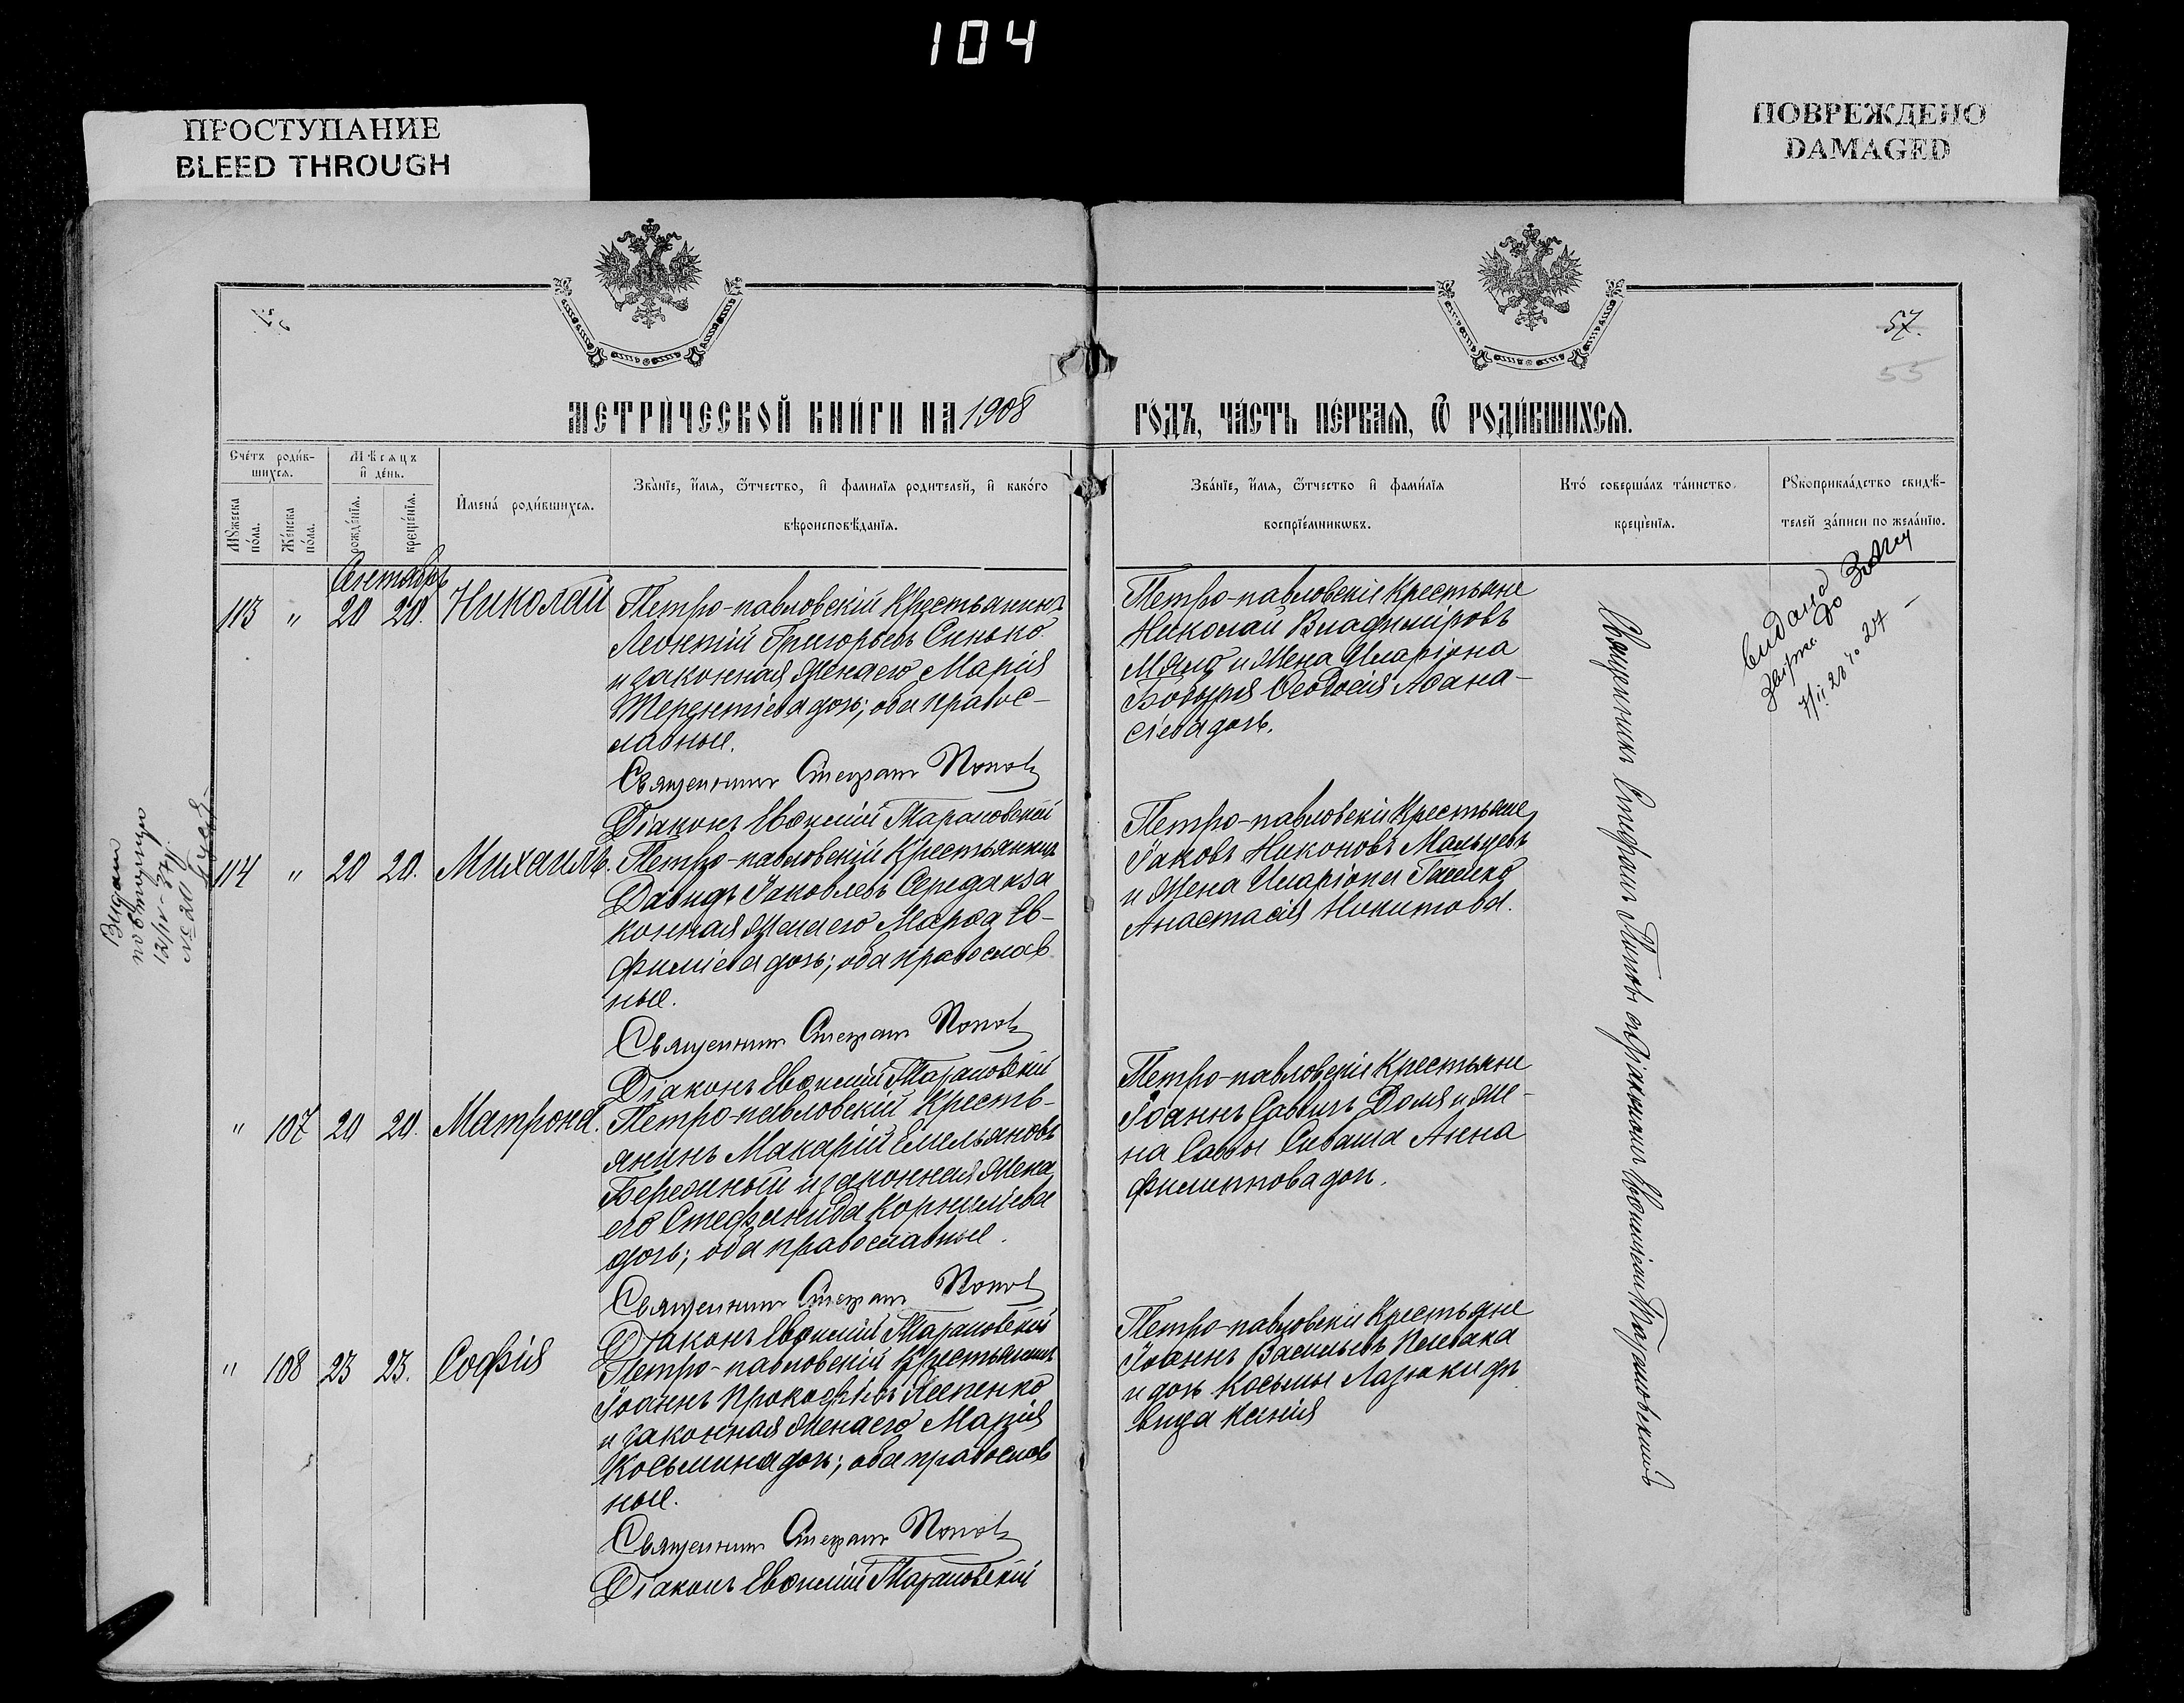 104
ПРОСТУПАНИЕ
BLEED THROUGH
ПОВРЕЖДЕНО
DAMAGED
57.
55
МЕТРИ́ЧЕСКОЙ КНИ́ГИ НА 1908
ГО́ДЪ, ЧА́СТЬ ПЕ́РВАЯ, Ѿ РОДИ́ВШИХСЯ.
Сче́тъ роди́в-
шихся.
Мѣ́сяцъ
и҆ де́нь.
Мꙋ́жеска
по́ла.
Же́нска
по́ла.
рожде́нїя.
креще́нїя.
И҆мена̀ роди́вшихся.
Зва́нїе, и҆́мя, ѻ҆́тчество, и҆ фами́лїя родителей, и҆ како́го
вѣроисповѣ́данїя.
Зва́нїе, и҆́мя, ѻ҆́тчество и҆ фами́лїя
воспрїе́мникѡвъ.
Кто́ соверша́лъ та́инство
креще́нїя.
Рꙋкоприкла́дство свидѣ́-
телей за́писи по жела́нїю.
Сентябрь
113 " 20 20. Николай
Петро-павловскій Крестьянинъ
Леонтій Григорьевъ Синько
и законная жена его Марія
Терентіева дочь; оба правос-
лавные.
Священникъ Стефанъ Поповъ
Діаконъ Евѳимій Тарановскій
Петро-павловскіе Крестьяне
Николай Владиміровъ
и жена Иларіона
Ѳеодосія Аѳана-
сіева дочь.
114 " 20 20. Михаилъ.
Петро-павловскій Крестьянинъ
Давидъ Іаковлевъ Середа и за
конная жена его Марѳа Ев-
фиміева дочь; оба православ
ные.
Священникъ Стефанъ Поповъ
Діаконъ Евѳимій Тарановскій
Петро-павловскіе Крестьяне
Іаковъ Никоновъ Мальцевъ
и жена Иларіона
Анастасія Никитова.
" 107 20 20. Матрона.
Петро-павловскій Кресть-
янинъ Макарій Емельяновъ
и законная жена
его Стефанида Корниліева
дочь; оба православные.
Священникъ Стефанъ Поповъ
Діаконъ Евѳимій Тарановскій
Петро-павловскіе Крестьяне
Іоаннъ Саввичъ Доля и же-
на Саввы Сиваша Анна
Филиппова дочь.
" 108 23 23. Софія
Петро-павловскій Крестьянинъ
Іоаннъ Прокофіевъ
и законная жена его Марія
Косьмина дочь; оба православ
ные.
Священникъ Стефанъ Поповъ
Діаконъ Евѳимій Тарановскій
Петро-павловскіе Крестьяне
Іоаннъ Васильевъ
и дочь Косьмы дѣ
вица Ксенія
Священникъ Стефанъ Поповъ съ діакономъ Евѳиміемъ Тарановскимъ